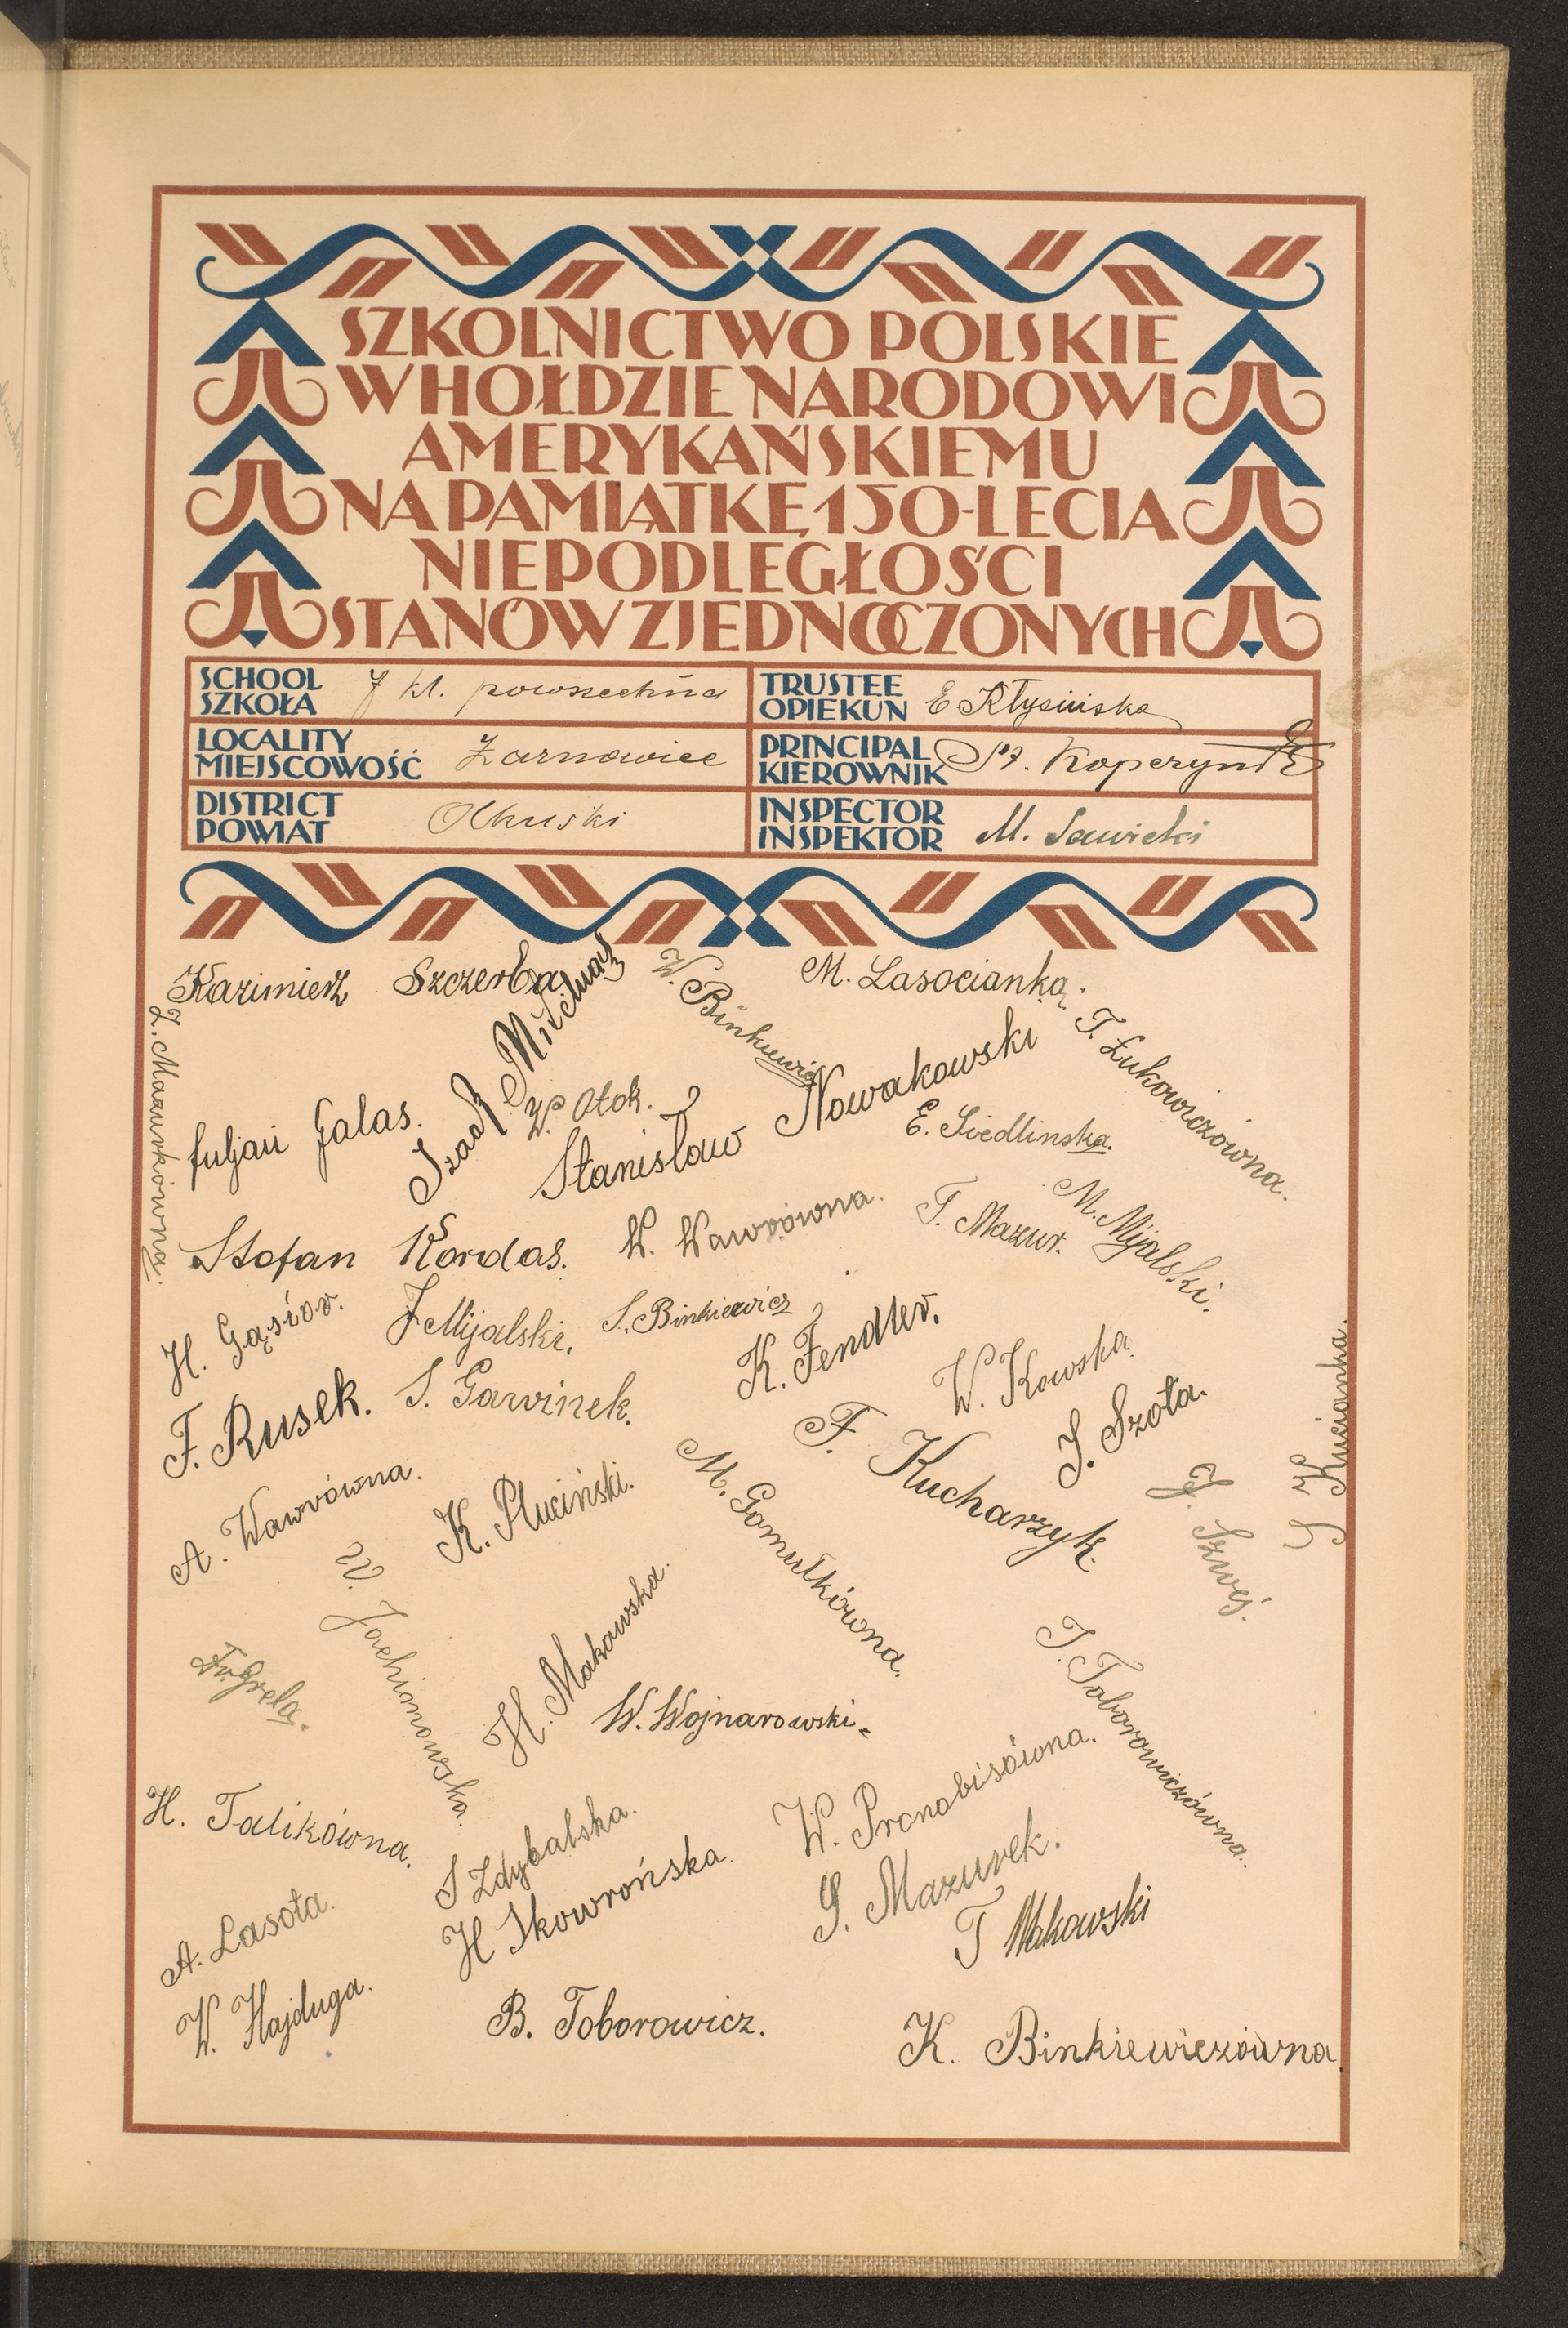 SZKOLNICTWO POLSKIE
W HOŁDZIE NARODOWI
AMERYKAŃSKIEMU
NA PAMIĄTKĘ 150-LECIA
NIEPODLEGŁOŚCI
STANÓW ZJEDNOCZONYCH
SCHOOL
SZKOŁA
7 kl. powszechna
TRUSTEE
OPIEKUN
E Kłysińska
LOCALITY
MIEJSCOWOŚĆ
Żarnowiec
PRINCIPAL
KIEROWNIK
St.
DISTRICT
POWIAT
Olkuski
INSPECTOR
INSPEKTOR
M. Sawicki
Kazimierz Szczerba
Izaak
W. Binkiewicz
M. Lasocianka.
Z. Mazurkówna.
T. Łukowiczówna.
Juljan Galas.
W. Otok.
Stanisław Nowakowski
E. Siedlinska.
Stefan Kordas.
W. Wawrówna.
T. Mazur.
M. Mijalski.
H. Gąsior.
J Mijalski.
S. Binkiewicz
K. Fendler.
W. Kowska.
F. Rusek.
S. Garvinek.
F. Kucharzyk.
J. Szota.
Kucianka.
A. Wawrówna.
K. Pluciński.
M. Gomułkówna.
J. Szwej.
W. Jachimowska.
Fr. Grela.
H. Makowska.
W. Wojnarowski.
T. Toborowiczówna.
H. Talikówna.
S Zdybalska.
W. Pronobisówna.
A. Lasota.
H Skowrońska.
S. Mazurek.
T Makowski
W. Hajduga.
B. Toborowicz.
K. Binkiewiczówna.